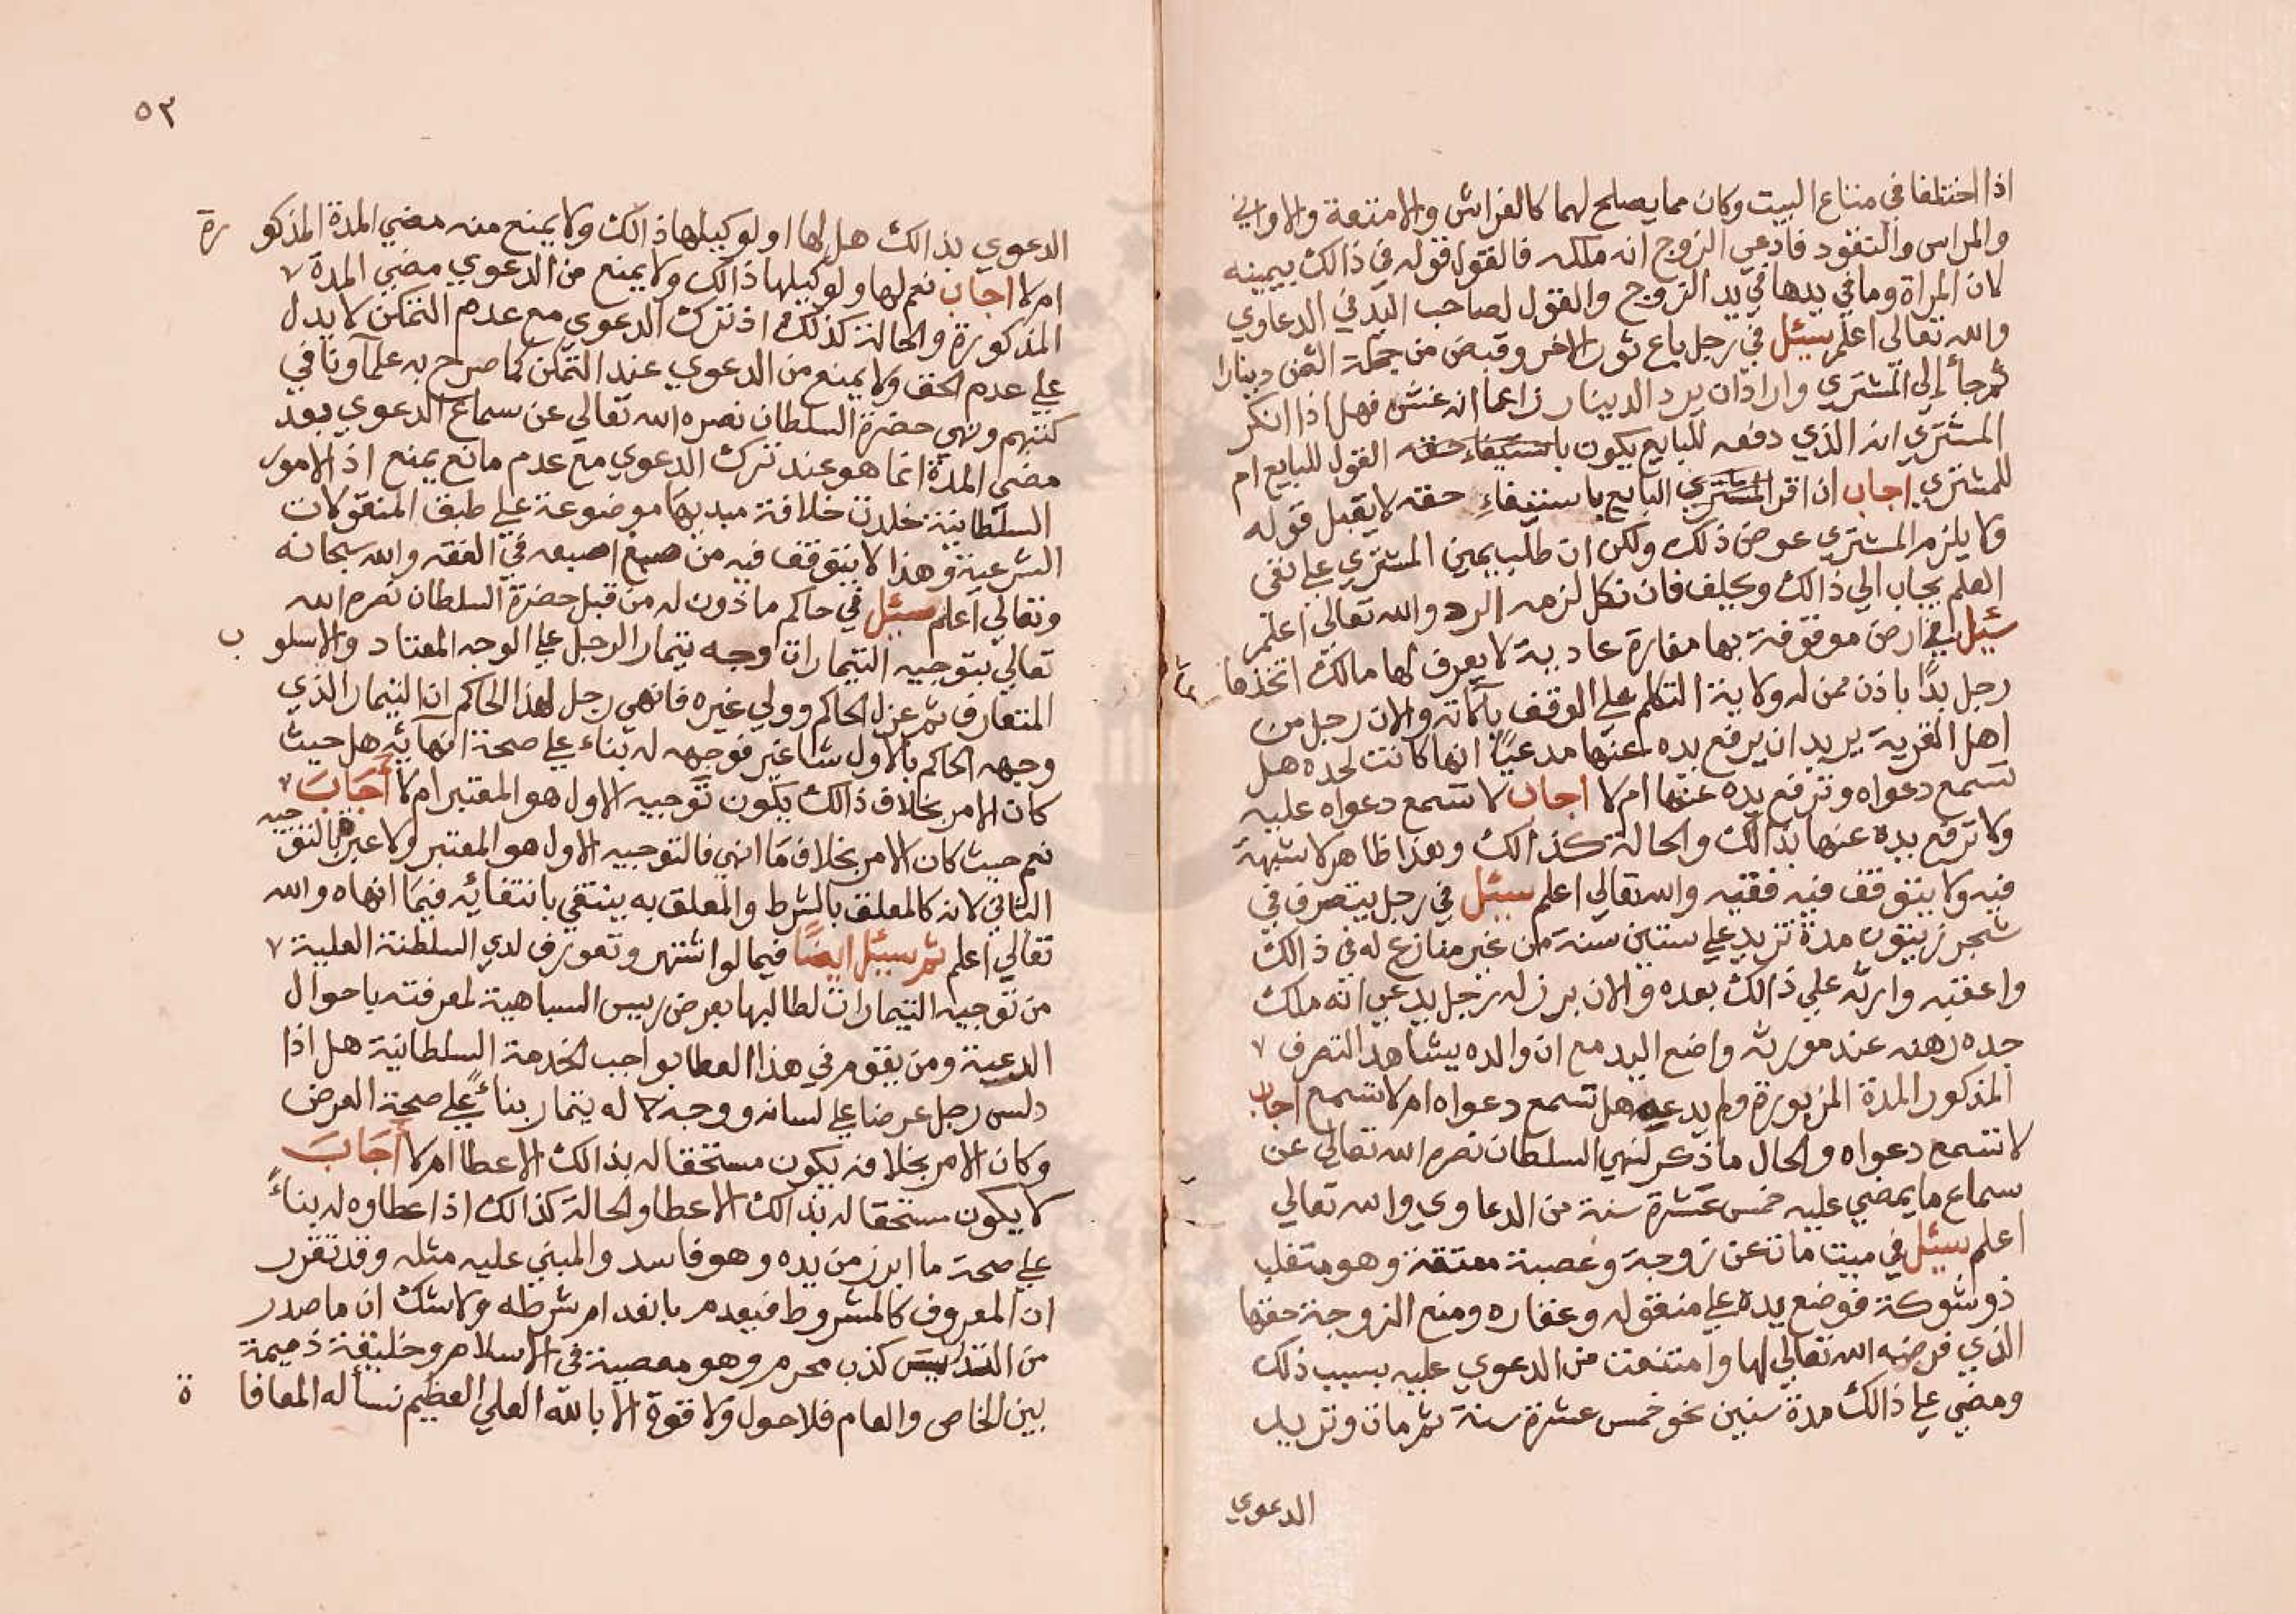 اذا اختلفا في متاع البيت وكان مما يصلح لهما كالفراش والامتعة والاواني
والمراس والنقود فادعي الزوج انه ملكه فالقول قوله في ذالك بيمينه
لان المراة وما في يدها في يد الزوج والقول لصاحب اليد في الدعاوي
والله تعالي اعلم سئل في رجل باع ثور لاخر وقبض من جملة الثمن دينارا
ثم جاء الي المشتري واراد ان يرد الدينار زاعما انه غش فهل اذا انكر
المشتري انه الذي دفعه للبايع يكون باستيفاء حقه القول للبايع ام
للمشتري اجاب ان اقر المشتري البايع باستيفاء حقه لا يقبل قوله
ولا يلزم المشتري عوض ذلك ولكن ان طلب يمين المشتري علي نفي
العلم يجاب الي ذالك ويحلف فان نكل لزمه الرد والله تعالي اعلم
سئل في ارض موقوفة بها مغارة عادية لا يعرف لها مالك اتخذها
رجل بدا باذن ممن له ولاية التكلم علي الوقف والان رجل من
اهل القرية يريد ان يرفع يده عنها مدعيا انها كانت لجده هل
تسمع دعواه وترفع يده عنها ام لا اجاب لا تسمع دعواه عليه
ولا ترفع يده عنها بذالك والحالة كذالك وهذا ظاهر لا شبهة
فيه ولا يتوقف فيه فقيه والله تعالي اعلم سئل في رجل يتصرف في
شجر زيتون مدة تزيد علي ستين سنة من غير منازع له في ذالك
واعقبه وارثه علي ذالك بعده والان برز له رجل يدعي انه ملك
جده رهنه عند مورثه واضع اليد مع ان والده يشاهد التصرف ٧
المذكور المدة المزبورة ولم يدعيه هل تسمع دعواه ام لا تسمع اجاب
لا تسمع دعواه والحال ما ذكر لنهي السلطان نصره الله تعالي عن
سماع ما يمضي عليه خمس عشرة سنة من الدعاوي والله تعالي
اعلم سئل في ميت مات عن زوجة وعصبة معتقة وهو متغلب
ذو شوكة فوضع يده علي منقوله وعقاره ومنع الزوجة حقها
الذي فرضه الله تعالي لها وامتنعت من الدعوي عليه بسبب ذلك
ومضي علي ذالك مدة سنين نحو خمس عشرة سنة ثم مات وتريد
الدعوي
٥٣
الدعوي بذالك هل لها او لوكيلها ذالك ولا يمنع منه مضي المدة المذكورة
ام لا اجاب نعم لها ولوكيلها ذالك ولا يمنع من الدعوي مضي المدة ٧
المذكورة والحالة كذلك اذ ترك الدعوي مع عدم التمكن لا يدل
علي عدم الحق ولا يمنع من الدعوي عند التمكن كما صرح به علماونا في
كتبهم ونهي حضرة السلطان نصره الله تعالي عن سماع الدعوي بعد
مضي المدة انما هو عند ترك الدعوي مع عدم مانع يمنع اذ الامور
السلطانية خلدت خلافة مبديها موضوعة علي طبق المنقولات
الشرعية وهذا لا يتوقف فيه من صبغ اصبعه في الفقه والله سبحانه
وتعالي اعلم سئل في حاكم ماذون له من قبل حضرة السلطان نصره الله
تعالي بتوجيه التيمارات اوجه تيمارا لرجل علي الوجه المعتاد والاسلوب
المتعارف ثم عزل الحاكم وولي غيره فانهي رجل لهذا الحاكم ان التيمار الذي
وجهه الحاكم بالاول شاغر فوجهه له بناء علي صحة انهائه هل حيث
كان الامر بخلاف ذالك يكون توجيه الاول هو المعتبر ام لا أجاب ٧
نعم حيث كان الامر بخلاف ما انهي فالتوجيه الاول هو المعتبر ولا عبرة بالتوجيه
الثاني لانه كالمعلق بالشرط والمعلق به ينتفي بانتفائه فيما انهاه والله
تعالي اعلم ثم سئل ايضا فيما لو اشتهر وتعورف لدي السلطنة العلية ٧
من توجيه التيمارات لطالبها بعرض رييس السباهية لمعرفته باحوال
الدعية ومن يقوم في هذا العطا بواجب الخدمة السلطانية هل اذا
دلس رجل عرضا علي لسانه ووجه لا له تيمار بناء علي صحة العرض
وكان الامر بخلافه يكون مستحقا له بذالك الاعطا ام لا أجاب
لا يكون مستحقا له بذالك الاعطا والحالة كذالك اذ اعطاوه له بناء
علي صحة ما ابرز من يده وهو فاسد والمبني عليه مثله وقد تقرر
ان المعروف كالمشروط فيعدم بانعدام شرطه ولا شك ان ما صدر
من التدليس كذب محرم وهو معصية في الاسلام وخليقة ذميمة
بين الخاص والعام فلا حول ولا قوة الا بالله العلي العظيم نساله المعافاة